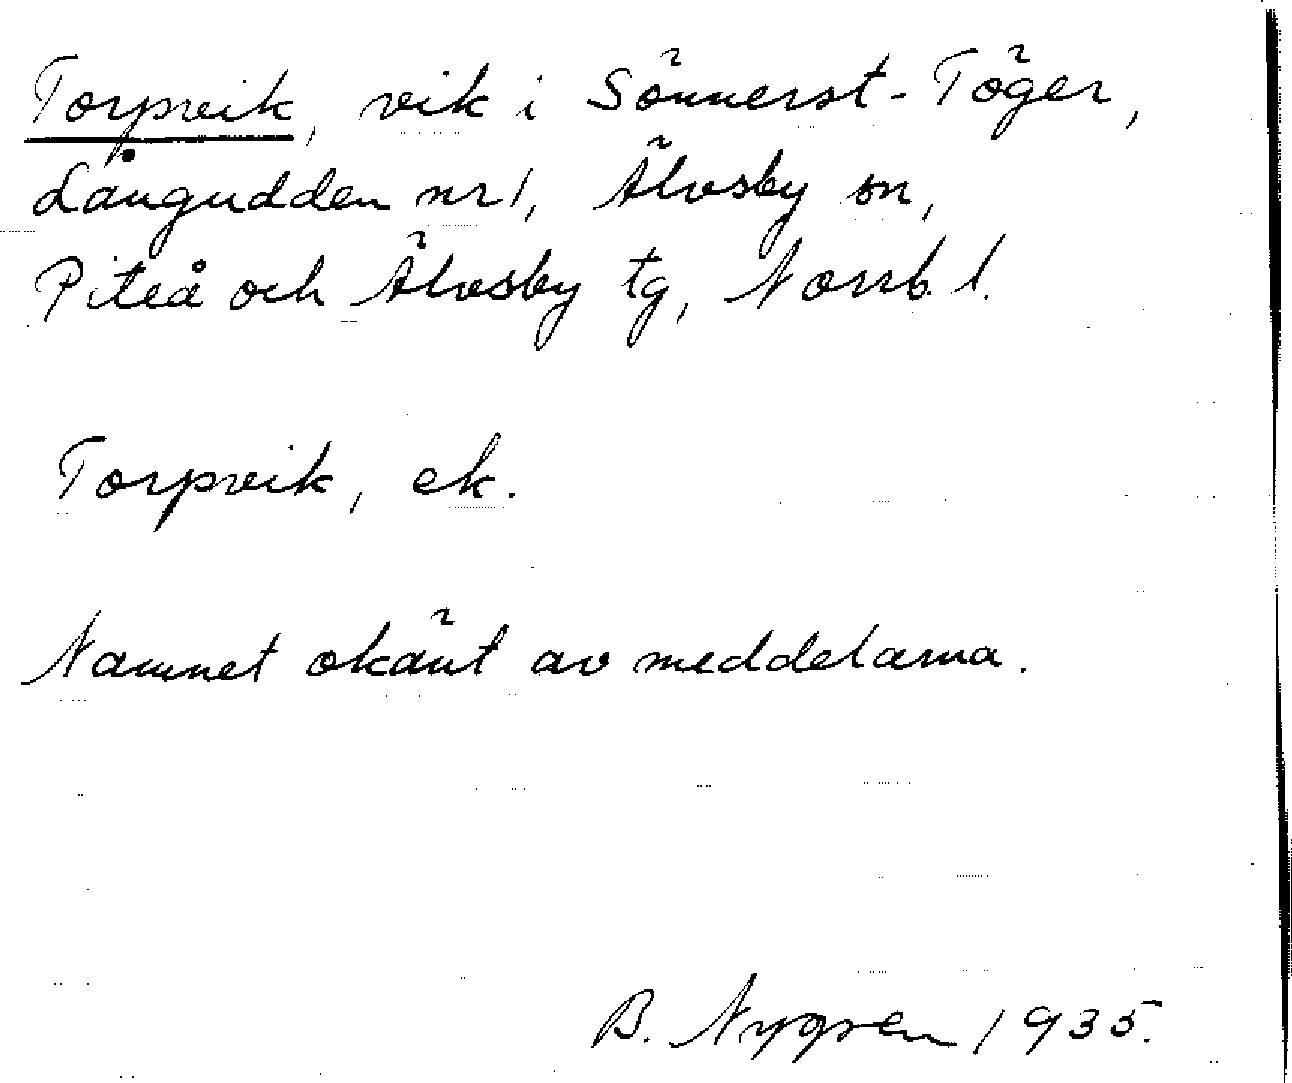 Torpvik, vik i Sönnerst-Töger,
Långudden nr 1, Älvsby sn,
Piteå och Älvsby tg, Norrb. l.
Torpvik, ek.
Namnet okänt av meddelarna.
B. Nygren 1935.